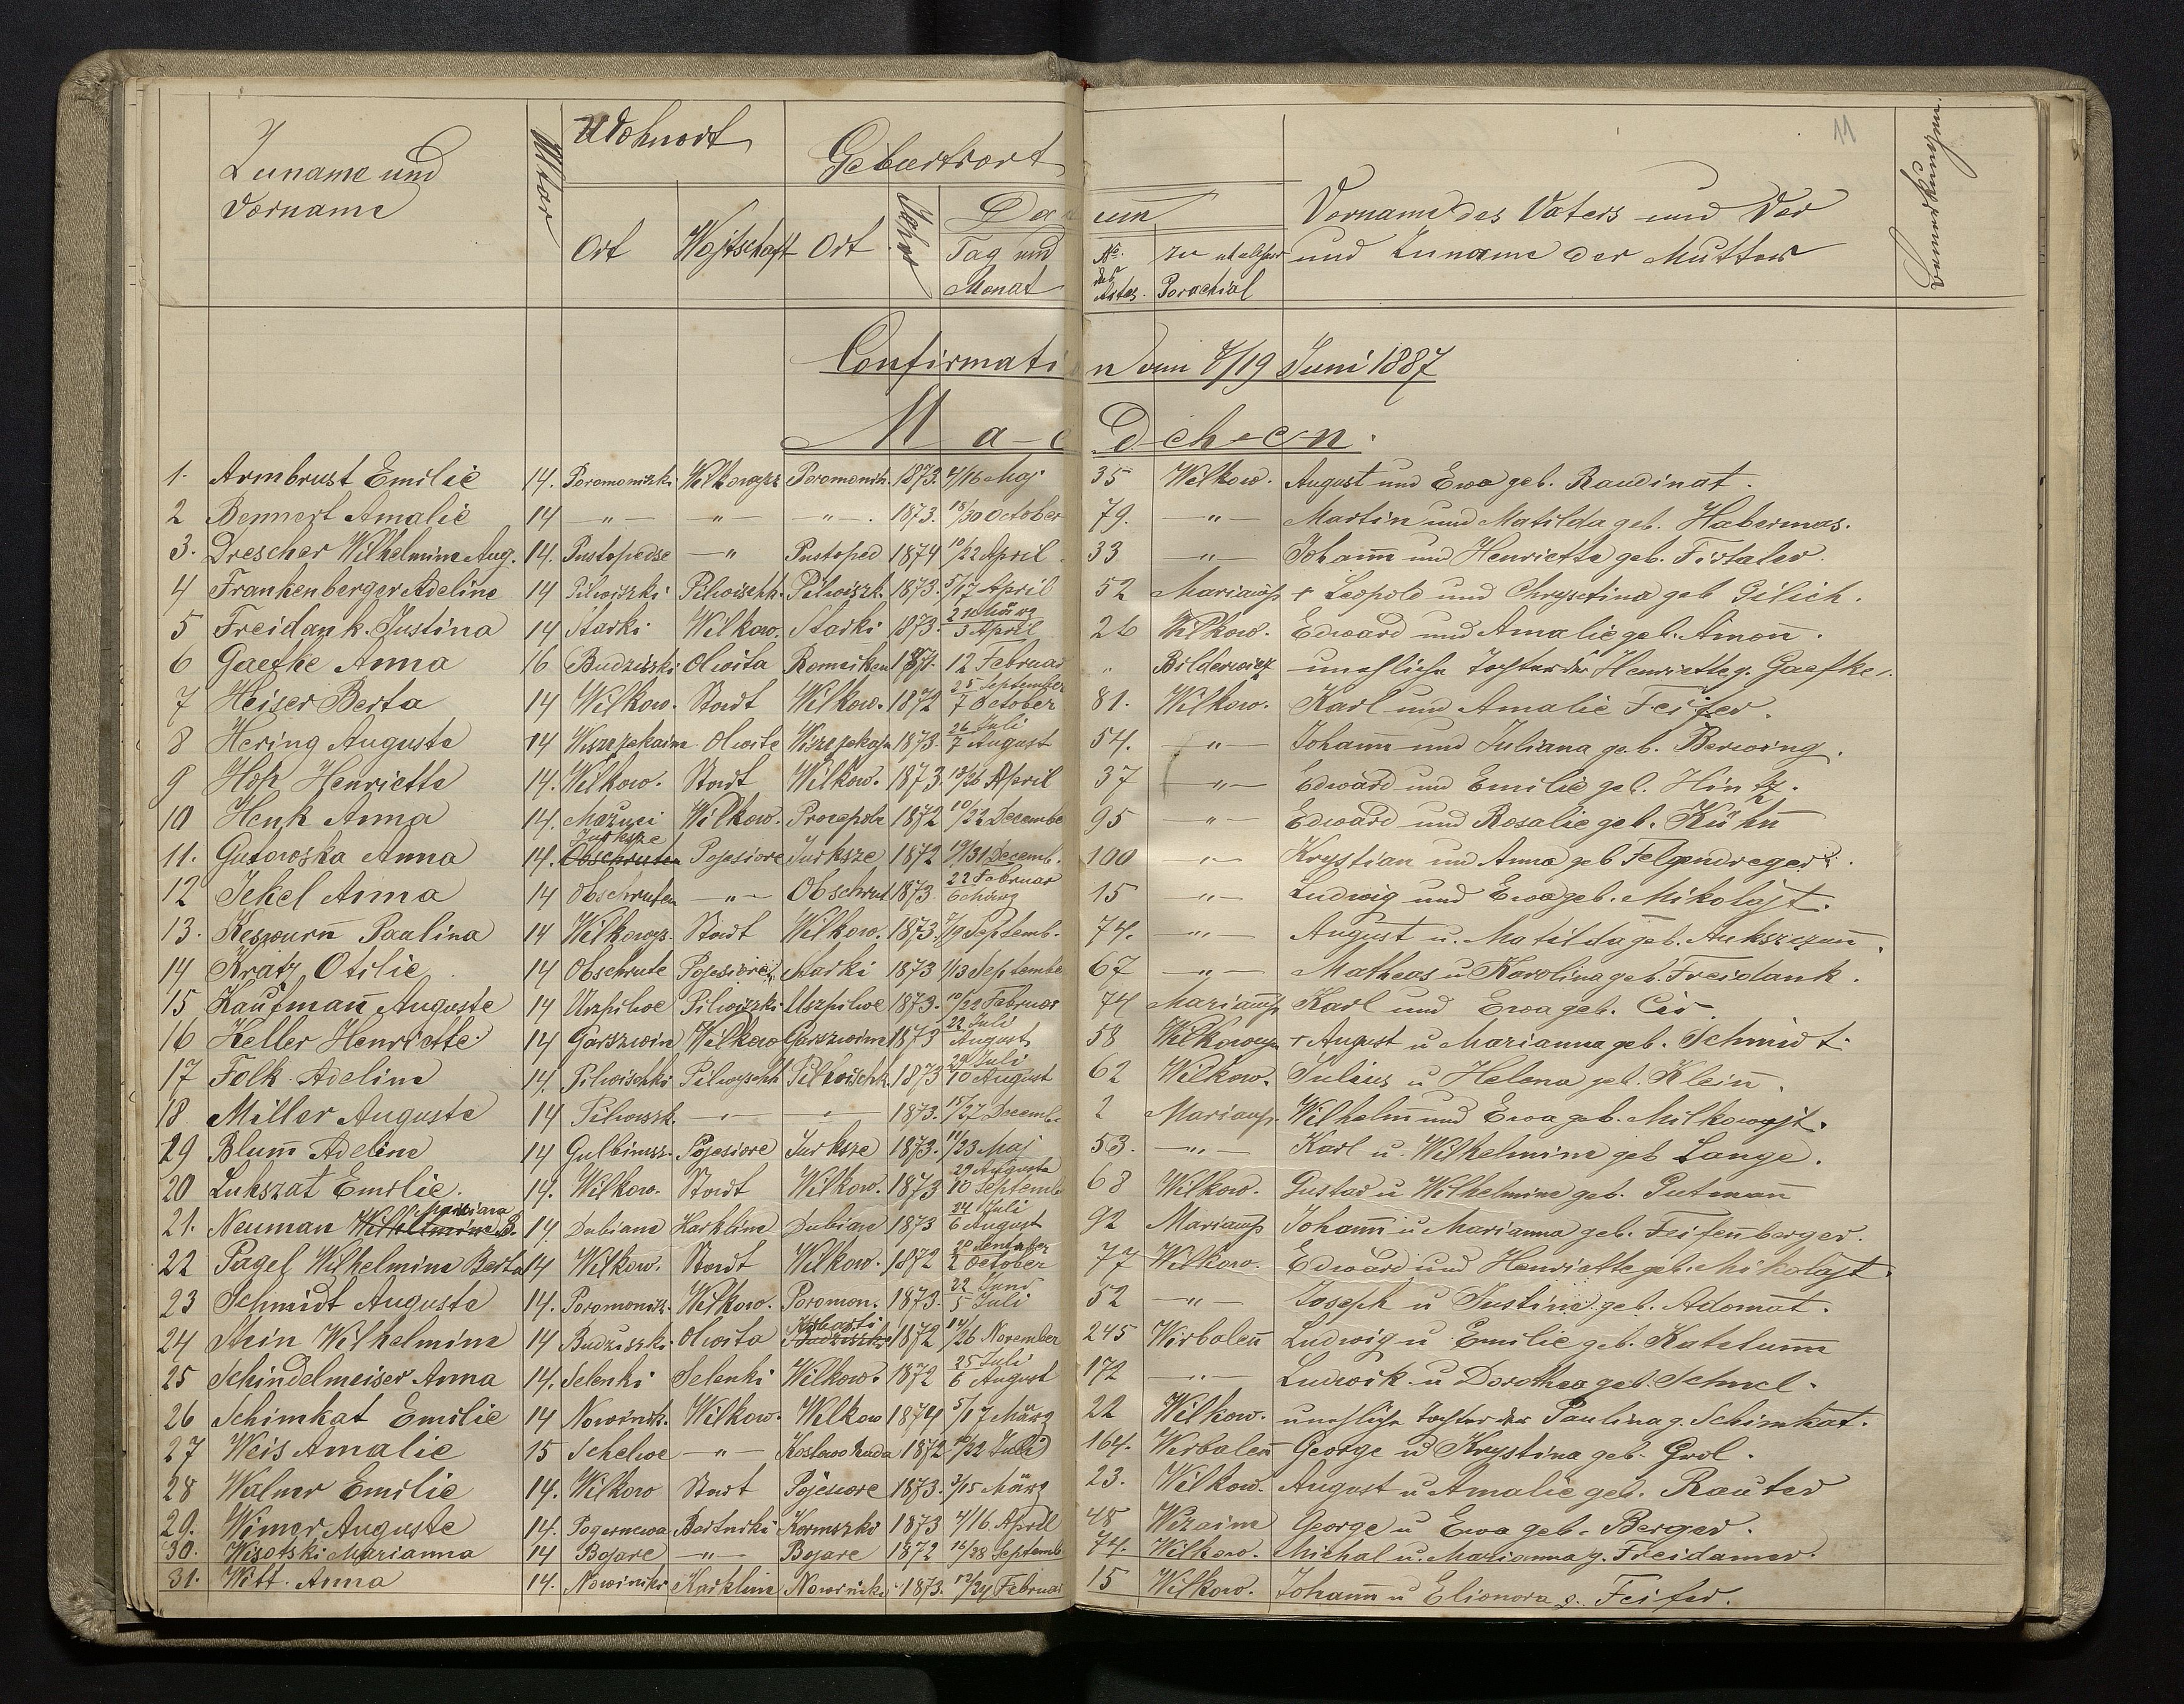 11
Zuname und Vorname Alter Wohnort Geburtsort Vorname des Vaters und Vor Bemerkungen.
Ort Wojtschaft Ort Jahr Datum und Zuname der Mutter
Tag und Monat № des Actes. zu welcher Parochial
Confirmation vom 7/19 Juni 1887
M a e d ch e n.
1. Armbrust Emilie 14. Poromoniszki Wilkowyszk Poromonisk. 1873. 4/16 Maj 35 Wilkow. August und Ewa geb. Raudinat.
2 Bennert Amalie 14 —"— —"— —"—. 1873. 18/30 October 79. —"— Martin und Matilda geb. Habermas.
3. Drescher Wilhelmine Aug. 14. Pustopedse —"— Pustoped 1874 10/22 April 33 —"— Johann und Henriette geb. Firtaler.
4 Frankenberger Adeline 14 Pilwiszki Pilwischk. Pilwiszk. 1873. 5/17 April 52 Mariamp. + Leopold und Chrystina geb Gilich.
5 Freidank. Justina 14 Starki Wilkow. Starki 1873. 24 März 5 April 26 Wilkow. Edward und Amalie geb. Amonn.
6 Gaefke Anna 16 Budziszki Olwita Romeiken 1871. 12 Februar " Bilderwiez unehliche Tochter der Henriette g. Gaefke.
7 Heiser Berta 14 Wilkow. Stadt Wilkow. 1872 25 September 7 October 81. Wilkow. Karl und Amalie Feifer.
8 Hering Auguste 14 Wiszezekaim Olwite 1873. 26 Juli 7 August 54. —"— Johann und Juliana geb. Berwing.
9 Hop Henriette 14. Wilkow. Stadt Wilkow. 1873. April 37 —"— Edward und Emilie geb. Hintz.
10 Henk Anna 14. Mazuci Wilkow. 1872 10/22 Decembe 95 —"— Edward und Rosalie geb. Kühn
11. Gutowska Anna 14. Jurksze Obschruten Pojesiore Jurksze 1872 19/31 Decemb. 100 —"— Krystian und Anna geb Felgendreger.
12 Jekel Anna 14 Obschruten —"— Obschrut 1873. 22 Februar 6 März 15 —"— Ludwig und Ewa geb. Mikolajt.
13. Keswurn Paulina 14 Wilkowys. Stadt Wilkow. 1873. 7/19 Septemb. 74. —"— August u. Matilda geb. Aukszczann.
14 Kratz Otilie 14 Obschrute Pojesiore Starki 1873 1/13 Septembe 67 —"— Matheas u Karolina geb. Freidank.
15 Kaufmann Auguste 14 Uszpilwe Pilwiszki Uszpilwe 1873. 10/22 Februar 74 Mariamp Karl und Ewa geb. Cis.
16 Keller Henriette 14 Garszwin Wilkow Garszwinn 1873 22 Juli August 58 Wilkowysz + August u Marianna geb. Schmidt.
17 Folk. Adeline 14. Pilwischki Pilwysch Pilwischk. 1873 29 Juli 10 August 62 Wilkow. Julius u Helena geb. Klein.
18 Miller Auguste 14 Pilwiszk. —"— —"— 1873. 15/27 Decemb. 2 Mariamp. Wilhelm und Ewa geb. Milkowajt.
19 Blumm Adeline 14 Gulbinisz. Pojesiore Jurksze 1873. 11/23 Maj 53. —"— Karl u. Wilhelmine geb Lange.
20 Lukszat Emilie. 14. Wilkow. Stadt Wilkow. 1873 29 Augusta 10 Septemb 68 Wilkow. Gustav u Wilhelmine geb. Gutmann
21. Neuman Wilhelmine B. Marianna 14. Dubiane Karkline Dubian 1873 24 Juli 6 August 92 Mariamp Johann u Marianna geb. Feifenberger.
22 Pagel Wilhelmine Berta 14 Wilkow. Stadt Wilkow. 1872 20 September 2 October 77 Wilkow. Edward und Henriette geb. Mikolajt.
23 Schmidt Auguste 14. Poromonisz. Wilkow. Poromon. 1873. 22 Juni 5 Juli 52 —"— Joseph u Justine geb. Adomat.
24 Stein Wilhelmine 14 Budziszki Olwita Kibarti Budziszki 1872 14/26 November 245 Wirbalen Ludwig u Emilie geb. Katelumm
25 Schindelmeiser Anna 14. Selenki Selenki Wilkow. 1872 25 Juli 6 August 172 —"— Ludwik u Dorothea geb. Schmel.
26 Schimkat Emilie 14 Nowinik. Wilkow. Wilkow 1874 5/17 März 22 Wilkow. unehliche Tochter der Paulina g. Schimkat.
27 Weis Amalie 15 Schelwe —"— Koslowo Ruda 1872 10/22 Juli 164. Wirbalen George u Krystina geb. Grol.
28 Walner Emilie 14. Wilkow Stadt Pojesiore 1873. 3/15 März 23. Wilkow. August u Amalie geb. Rauter
29. Wimer Auguste 14. Pogernewa Bartniki 1873 4/16 April 48 Wizaine George u Ewa geb. Berger.
30. Wisotski Marianna 14 Bojare —"— Bojare 1872 16/28 Septemb 74. Wilkow. Michal u. Marianna g. Freidamer.
31. Witt. Anna 14. Nowiniki Karkline Nowiniki. 1873. 12/24 Februar 15 Wilkow. Johann u Elionora g. Feifer.